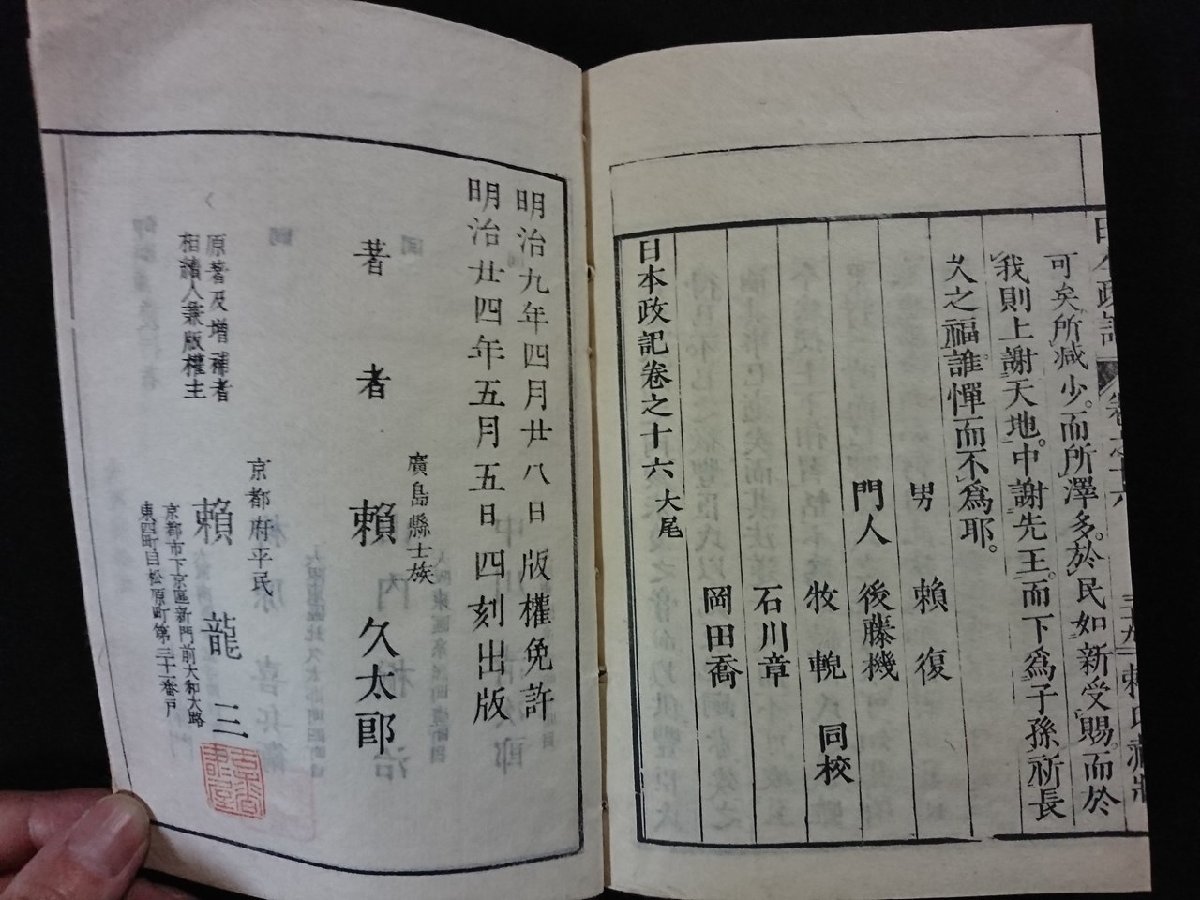 可矣所減少。而所澤多。於民如新受賜。而於
我則上謝天地。中謝先王。而下爲子孫祈長
久之福。誰憚而不爲耶。
男 賴復
門人 後藤機
牧輗 同校
石川章
岡田喬
日本政記卷之十六大尾
明治九年四月廿八日版權免許
明治廿四年五月五日四刻出版
廣島縣士族
著者 賴久太郎
京都府平民
原著及增補者
相續人兼版權主
賴龍三
京都市下京區新門前大和大路
東四町目松原町第三十二番戸